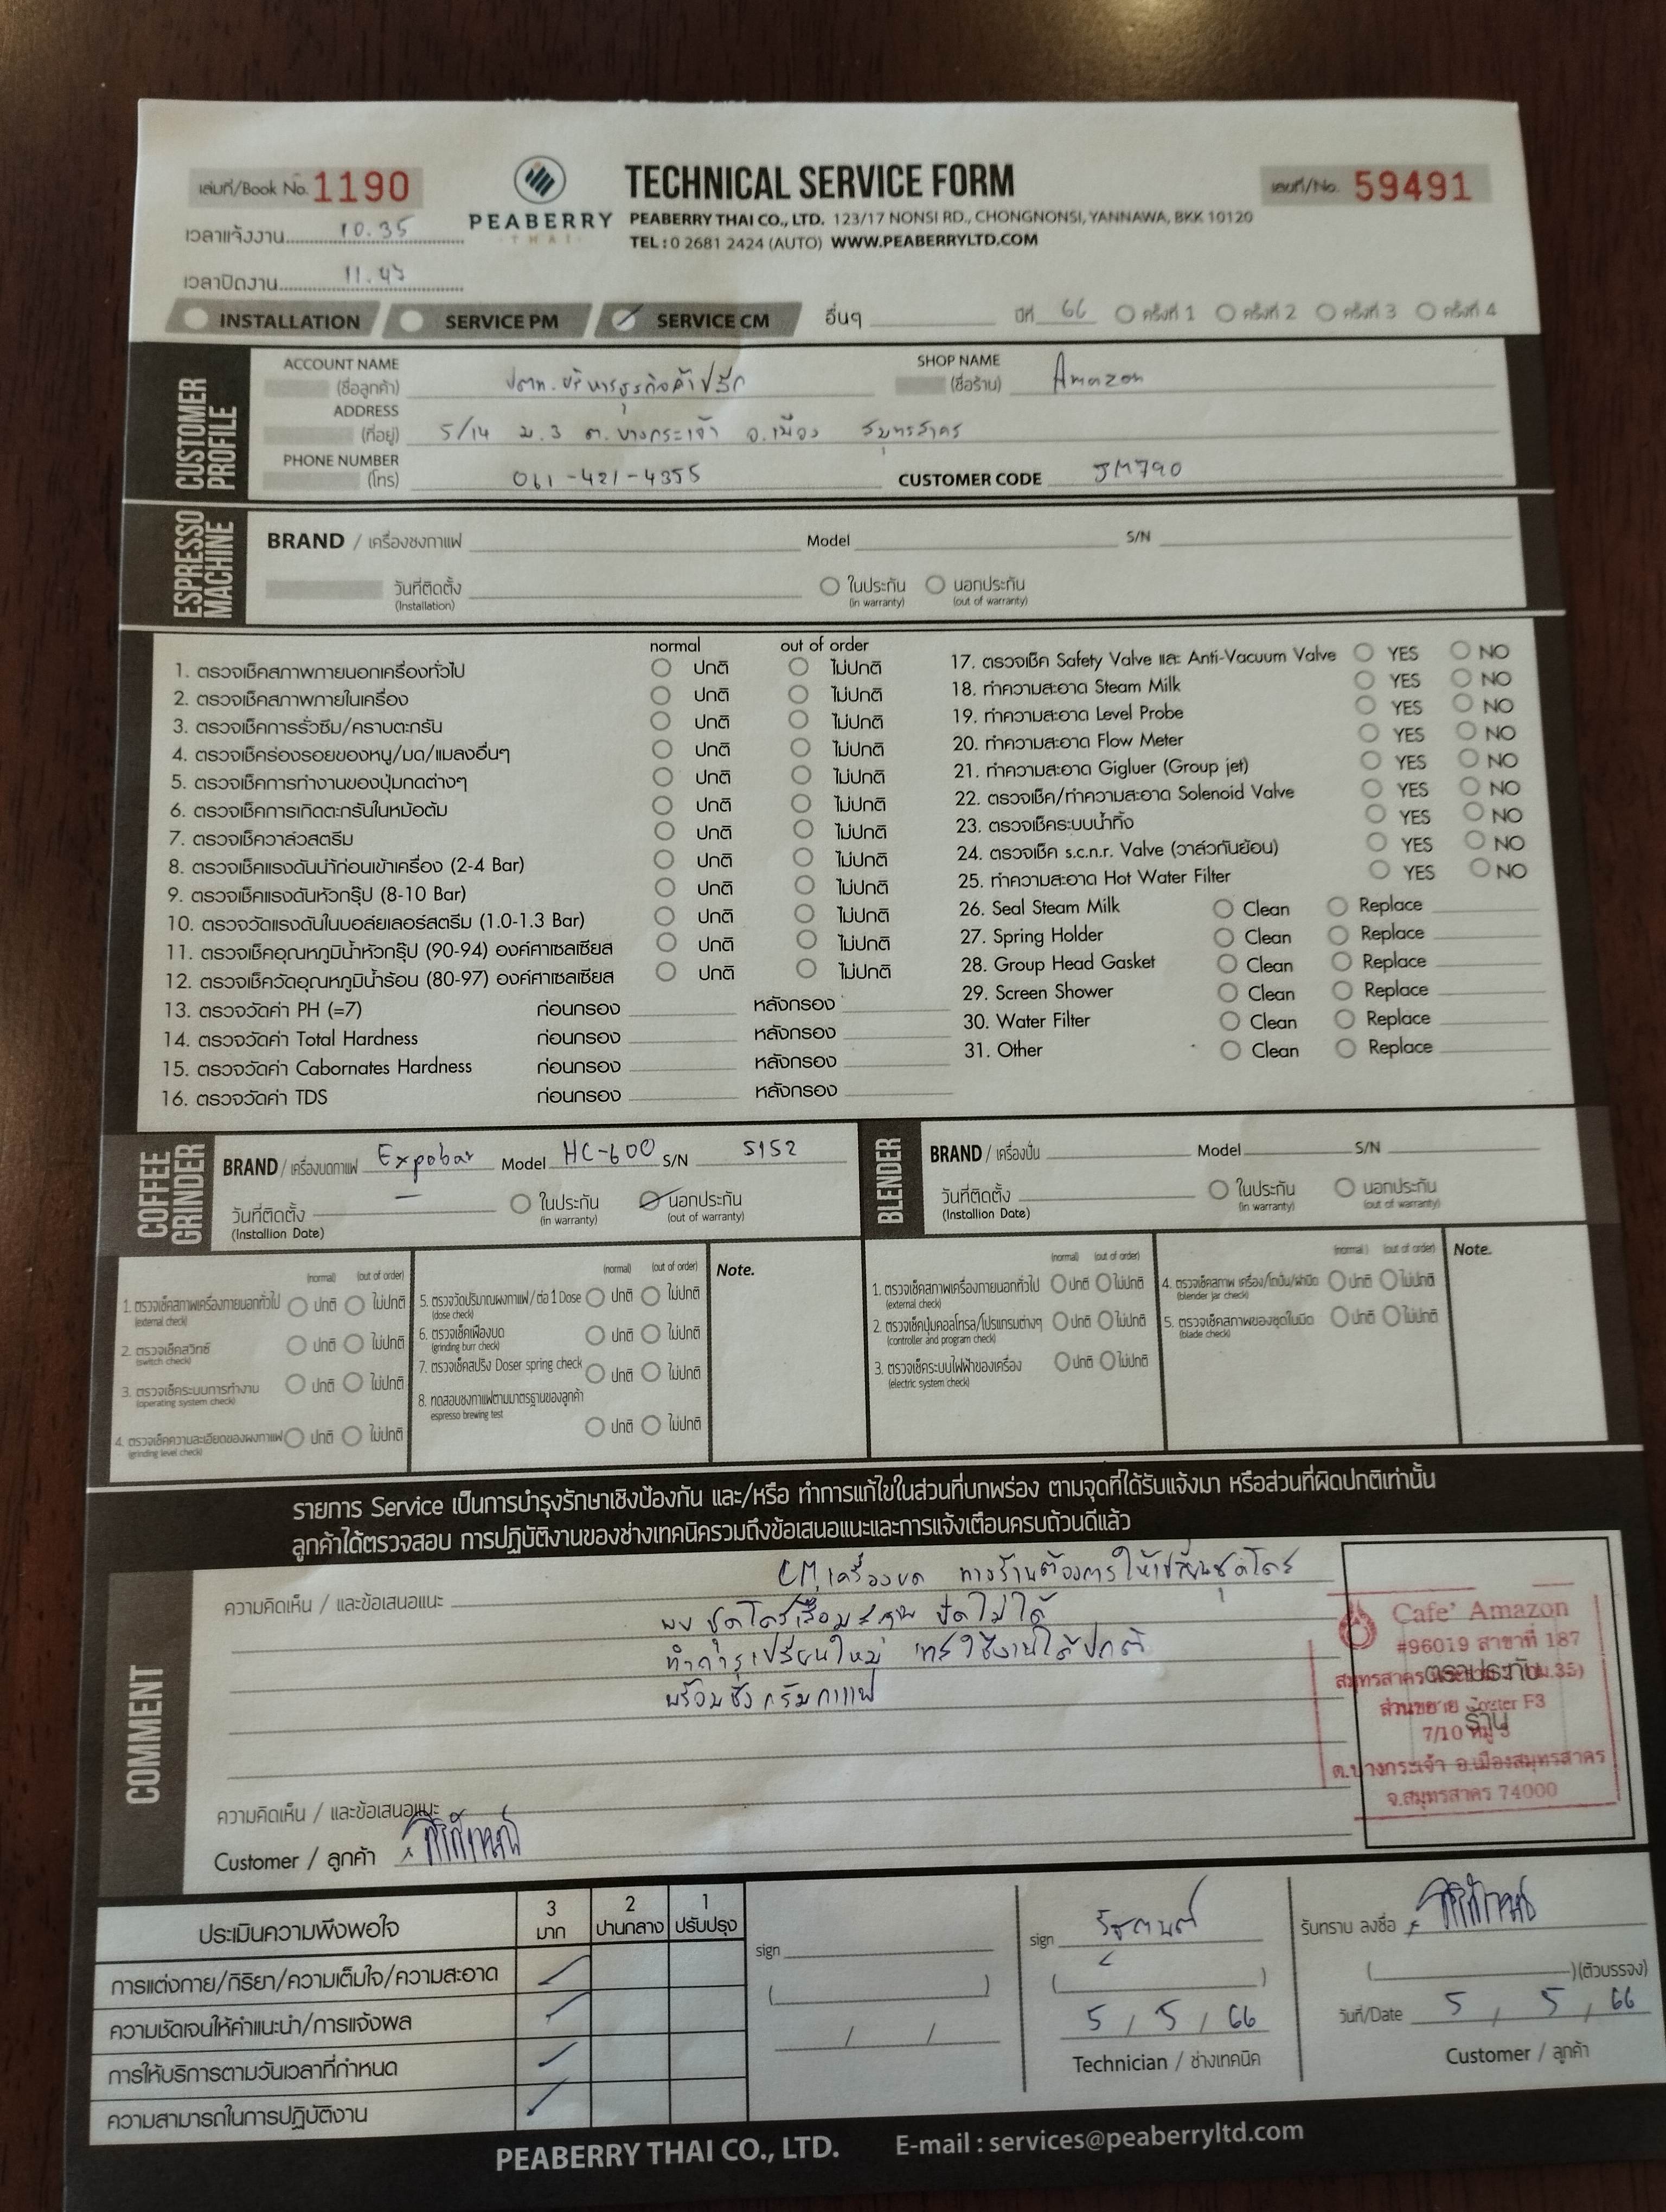 เล่มที่/Book No. 1190
PEABERRY
THAI
TECHNICAL SERVICE FORM
PEABERRY THAI CO., LTD. 123/17 NONSI RD., CHONGNONSI, YANNAWA, BKK 10120
TEL : 0 2681 2424 (AUTO) WWW.PEABERRYLTD.COM
เลขที่/No. 59491
เวลาแจ้งงาน 10.35
เวลาปิดงาน 11.47
INSTALLATION SERVICE PM SERVICE CM อื่นๆ ปีที่ 66 ครั้งที่ 1 ครั้งที่ 2 ครั้งที่ 3 ครั้งที่ 4
CUSTOMER PROFILE
ACCOUNT NAME (ชื่อลูกค้า) ปตท.บริหารธุรกิจค้าปลีก SHOP NAME (ชื่อร้าน) Amazon
ADDRESS (ที่อยู่) 5/14 ม.3 ต.บางกระเจ้า อ.เมือง สมุทรสาคร
PHONE NUMBER (โทร) 061-421-4355 CUSTOMER CODE JM790
ESPRESSO MACHINE
BRAND / เครื่องชงกาแฟ Model S/N
วันที่ติดตั้ง (Installation) ในประกัน (in warranty) นอกประกัน (out of warranty)
normal out of order
1. ตรวจเช็คสภาพภายนอกเครื่องทั่วไป ปกติ ไม่ปกติ
2. ตรวจเช็คสภาพภายในเครื่อง ปกติ ไม่ปกติ
3. ตรวจเช็คการรั่วซึม/คราบตะกรัน ปกติ ไม่ปกติ
4. ตรวจเช็คร่องรอยของหนู/มด/แมลงอื่นๆ ปกติ ไม่ปกติ
5. ตรวจเช็คการทำงานของปุ่มกดต่างๆ ปกติ ไม่ปกติ
6. ตรวจเช็คการเกิดตะกรันในหม้อต้ม ปกติ ไม่ปกติ
7. ตรวจเช็ควาล์วสตรีม ปกติ ไม่ปกติ
8. ตรวจเช็คแรงดันน้ำก่อนเข้าเครื่อง (2-4 Bar) ปกติ ไม่ปกติ
9. ตรวจเช็คแรงดันหัวกรุ๊ป (8-10 Bar) ปกติ ไม่ปกติ
10. ตรวจวัดแรงดันในบอล์ยเลอร์สตรีม (1.0-1.3 Bar) ปกติ ไม่ปกติ
11. ตรวจเช็คอุณหภูมิน้ำหัวกรุ๊ป (90-94) องค์ศาเซลเซียส ปกติ ไม่ปกติ
12. ตรวจเช็ควัดอุณหภูมิน้ำร้อน (80-97) องค์ศาเซลเซียส ปกติ ไม่ปกติ
13. ตรวจวัดค่า PH (=7) ก่อนกรอง หลังกรอง
14. ตรวจวัดค่า Total Hardness ก่อนกรอง หลังกรอง
15. ตรวจวัดค่า Cabornates Hardness ก่อนกรอง หลังกรอง
16. ตรวจวัดค่า TDS ก่อนกรอง หลังกรอง
17. ตรวจเช็ค Safety Valve และ Anti-Vacuum Valve YES NO
18. ทำความสะอาด Steam Milk YES NO
19. ทำความสะอาด Level Probe YES NO
20. ทำความสะอาด Flow Meter YES NO
21. ทำความสะอาด Gigluer (Group jet) YES NO
22. ตรวจเช็ค/ทำความสะอาด Solenoid Valve YES NO
23. ตรวจเช็คระบบน้ำทิ้ง YES NO
24. ตรวจเช็ค s.c.n.r. Valve (วาล์วกันย้อน) YES NO
25. ทำความสะอาด Hot Water Filter YES NO
26. Seal Steam Milk Clean Replace
27. Spring Holder Clean Replace
28. Group Head Gasket Clean Replace
29. Screen Shower Clean Replace
30. Water Filter Clean Replace
31. Other Clean Replace
COFFEE GRINDER
BRAND / เครื่องบดกาแฟ Expobar Model HC-600 S/N 5152
วันที่ติดตั้ง (Installion Date) - ในประกัน (in warranty) นอกประกัน (out of warranty)
BLENDER
BRAND / เครื่องปั่น Model S/N
วันที่ติดตั้ง (Installion Date) ในประกัน (in warranty) นอกประกัน (out of warranty)
(normal) (out of order)
1. ตรวจเช็คสภาพเครื่องภายนอกทั่วไป (external check) ปกติ ไม่ปกติ
2. ตรวจเช็คสวิทซ์ (switch check) ปกติ ไม่ปกติ
3. ตรวจเช็คระบบการทำงาน (operating system check) ปกติ ไม่ปกติ
4. ตรวจเช็คความละเอียดของผงกาแฟ (grinding level check) ปกติ ไม่ปกติ
(normal) (out of order)
5. ตรวจวัดปริมาณผงกาแฟ/ต่อ 1 Dose (dose check) ปกติ ไม่ปกติ
6. ตรวจเช็คเฟืองบด (grinding burr check) ปกติ ไม่ปกติ
7. ตรวจเช็คสปริง Doser spring check ปกติ ไม่ปกติ
8. ทดสอบชงกาแฟตามมาตรฐานของลูกค้า espresso brewing test ปกติ ไม่ปกติ
Note.
(normal) (out of order)
1. ตรวจเช็คสภาพเครื่องภายนอกทั่วไป (external check) ปกติ ไม่ปกติ
2. ตรวจเช็คปุ่มคอลโทรล/โปรแกรมต่างๆ (controller and program check) ปกติ ไม่ปกติ
3. ตรวจเช็คระบบไฟฟ้าของเครื่อง (electric system check) ปกติ ไม่ปกติ
(normal) (out of order)
4. ตรวจเช็คสภาพ เครื่อง/โถปั่น/ฝาปิด (blender jar check) ปกติ ไม่ปกติ
5. ตรวจเช็คสภาพของชุดใบมีด (blade check) ปกติ ไม่ปกติ
Note.
รายการ Service เป็นการบำรุงรักษาเชิงป้องกัน และ/หรือ ทำการแก้ไขในส่วนที่บกพร่อง ตามจุดที่ได้รับแจ้งมา หรือส่วนที่ผิดปกติเท่านั้น
ลูกค้าได้ตรวจสอบ การปฏิบัติงานของช่างเทคนิครวมถึงข้อเสนอแนะและการแจ้งเตือนครบถ้วนดีแล้ว
COMMENT
ความคิดเห็น / และข้อเสนอแนะ CM เครื่องบด ทางร้านต้องการให้เปลี่ยนชุดโดส
พบ ชุดโดสเสื่อมสภาพ ปัดไม่ได้
ทำการเปลี่ยนใหม่ ใช้งานได้ปกติ
พร้อมชั่งกรัมกาแฟ
Cafe' Amazon
#96019 สาขาที่ 187
ส่วนขยาย F3
7/10 หมู่ 3
ต.บางกระเจ้า อ.เมืองสมุทรสาคร
จ.สมุทรสาคร 74000
ตราประทับ
ร้าน
ความคิดเห็น / และข้อเสนอแนะ
Customer / ลูกค้า
ประเมินความพึงพอใจ 3 มาก 2 ปานกลาง 1 ปรับปรุง
การแต่งกาย/กิริยา/ความเต็มใจ/ความสะอาด
ความชัดเจนให้คำแนะนำ/การแจ้งผล
การให้บริการตามวันเวลาที่กำหนด
ความสามารถในการปฏิบัติงาน
sign
( )
/ /
sign
( )
5 / 5 / 66
Technician / ช่างเทคนิค
รับทราบ ลงชื่อ
( ) (ตัวบรรจง)
วันที่/Date 5 / 5 / 66
Customer / ลูกค้า
PEABERRY THAI CO., LTD. E-mail : services@peaberryltd.com